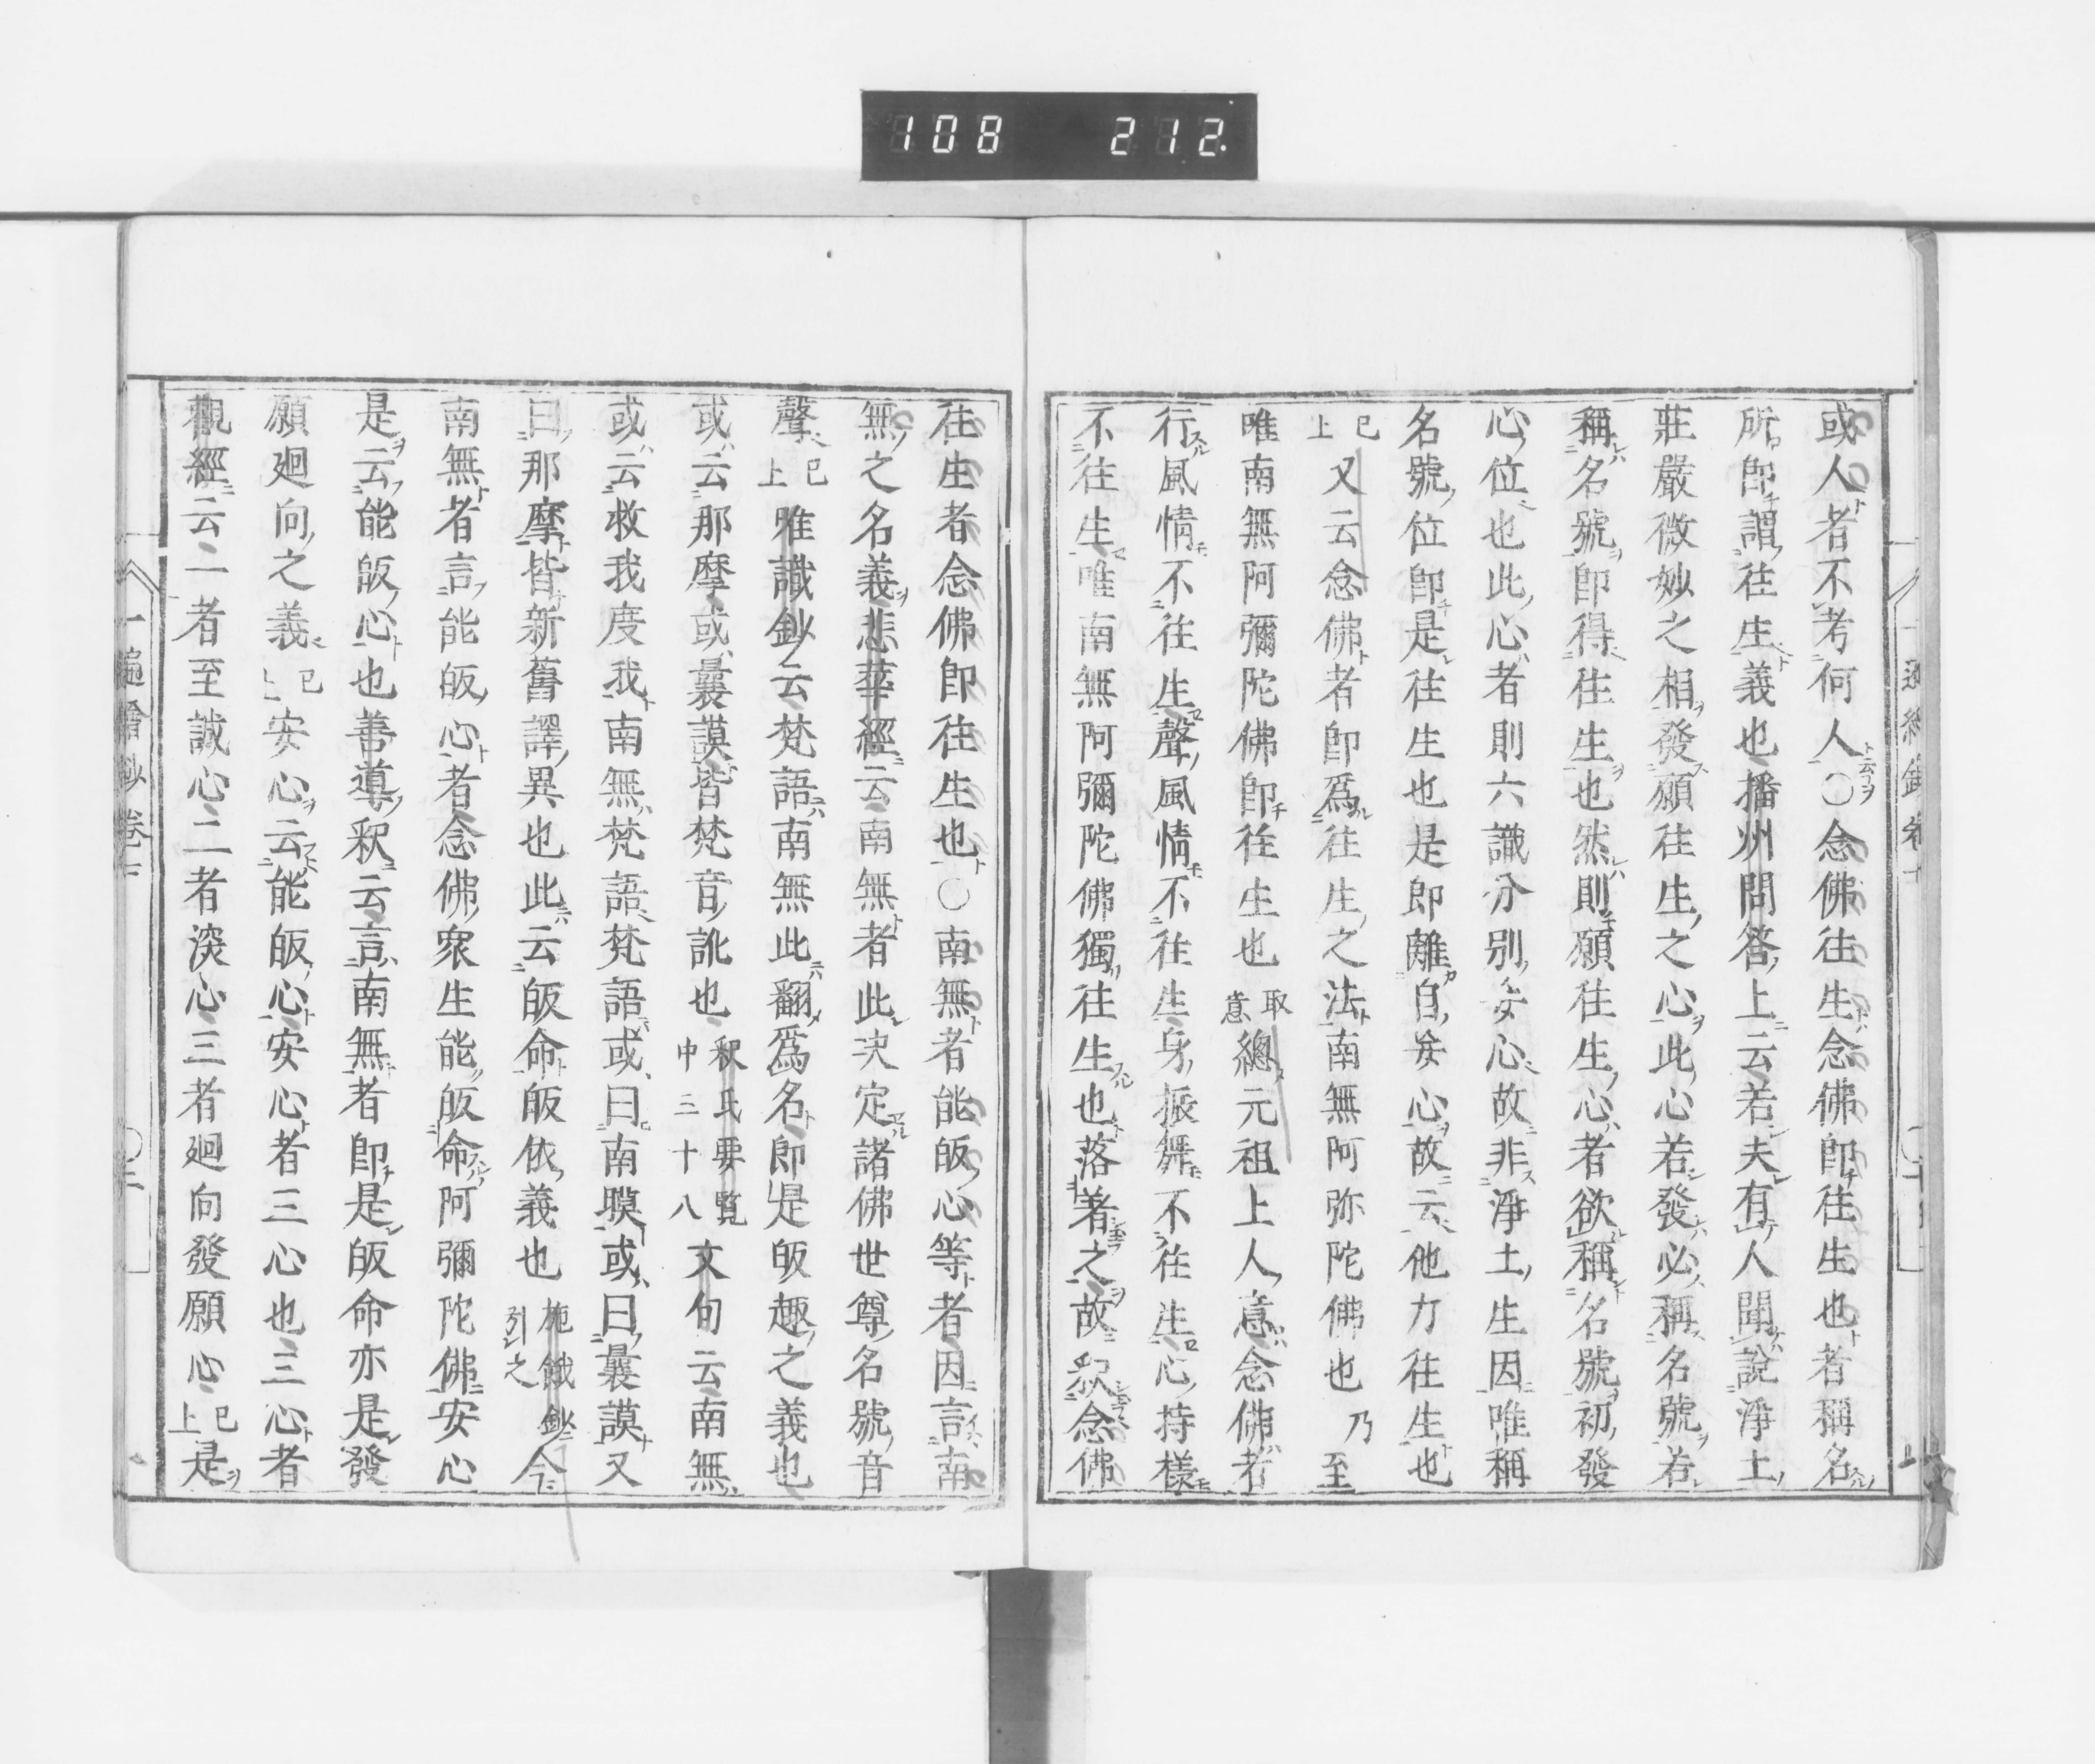 108 212.
或人者不考何人〇念佛往生念佛即往生也者稱名
所即謂往生義也播州問答上云若夫有人聞說淨土
莊嚴微妙之相發願往生之心此心若發必稱名號若
稱名號即得往生也然則願往生心者欲稱名號初發
心位也此心者則六識分別妄心故非淨土生因唯稱
名號位即是往生也是即離自妄心故云他力往生也
已上又云念佛者即爲往生之法南無阿弥陀佛也乃至
唯南無阿彌陀佛即往生也取意總元祖上人意念佛者
行風情不往生聲風情不往生身振舞不往生心持樣
不往生唯南無阿彌陀佛獨往生也落著之故釈念佛
往生者念佛即往生也〇南無者能皈心等者因言南
無之名義悲華經云南無者此決定諸佛世尊名號音
聲已上唯識鈔云梵語南無此翻爲名即是皈趣之義也
或云那摩或曩謨皆梵音訛也釈氏要覧中三十八文句云南無
或云救我度我南無梵語梵語或曰南膜或曰曩謨又
曰那摩皆新舊譯異也此云皈命皈依義也施餓鈔引之今
南無者言能皈心者念佛衆生能皈命阿彌陀佛安心
是云能皈心也善導釈云言南無者即是皈命亦是發
願廻向之義已上安心云能皈心安心者三心也三心者
觀經云一者至誠心二者深心三者廻向發願心已上是
一遍繪鈔 卷十